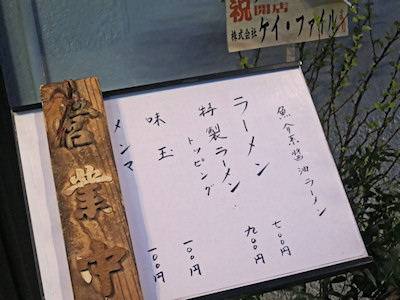 祝開店
株式会社 ケイ・ファイル
魚介系醤油ラーメン
ラーメン 七〇〇円
特製ラーメン 九〇〇円
トッピング
味玉 一〇〇円
メンマ 一〇〇円
営業中